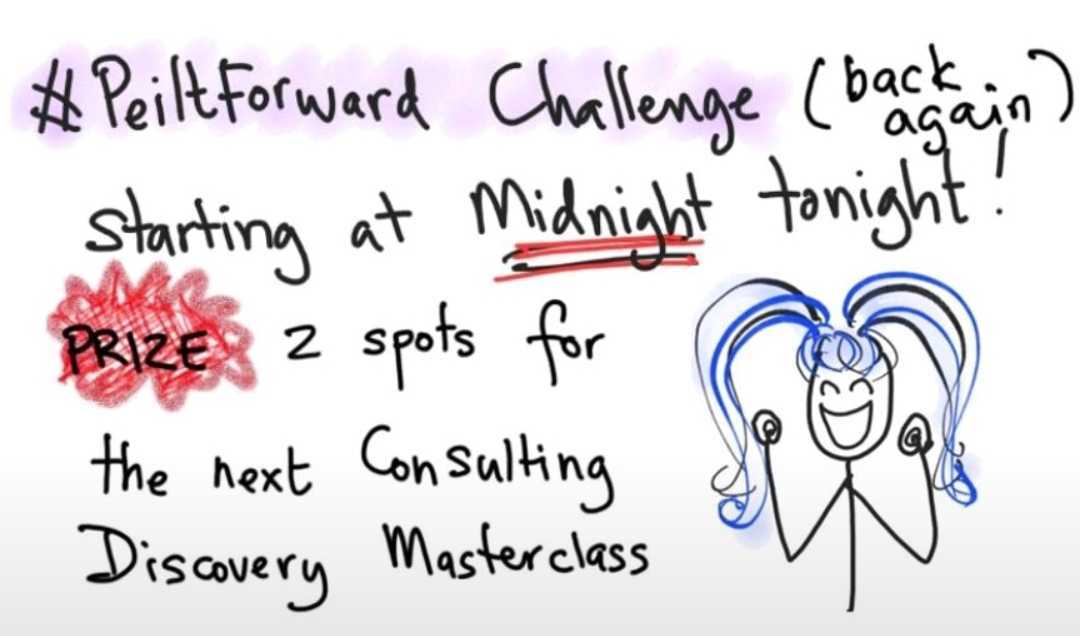 #PeiltForward Challenge (back again)
starting at Midnight tonight!
PRIZE 2 spots for
the next Consulting
Discovery Masterclass